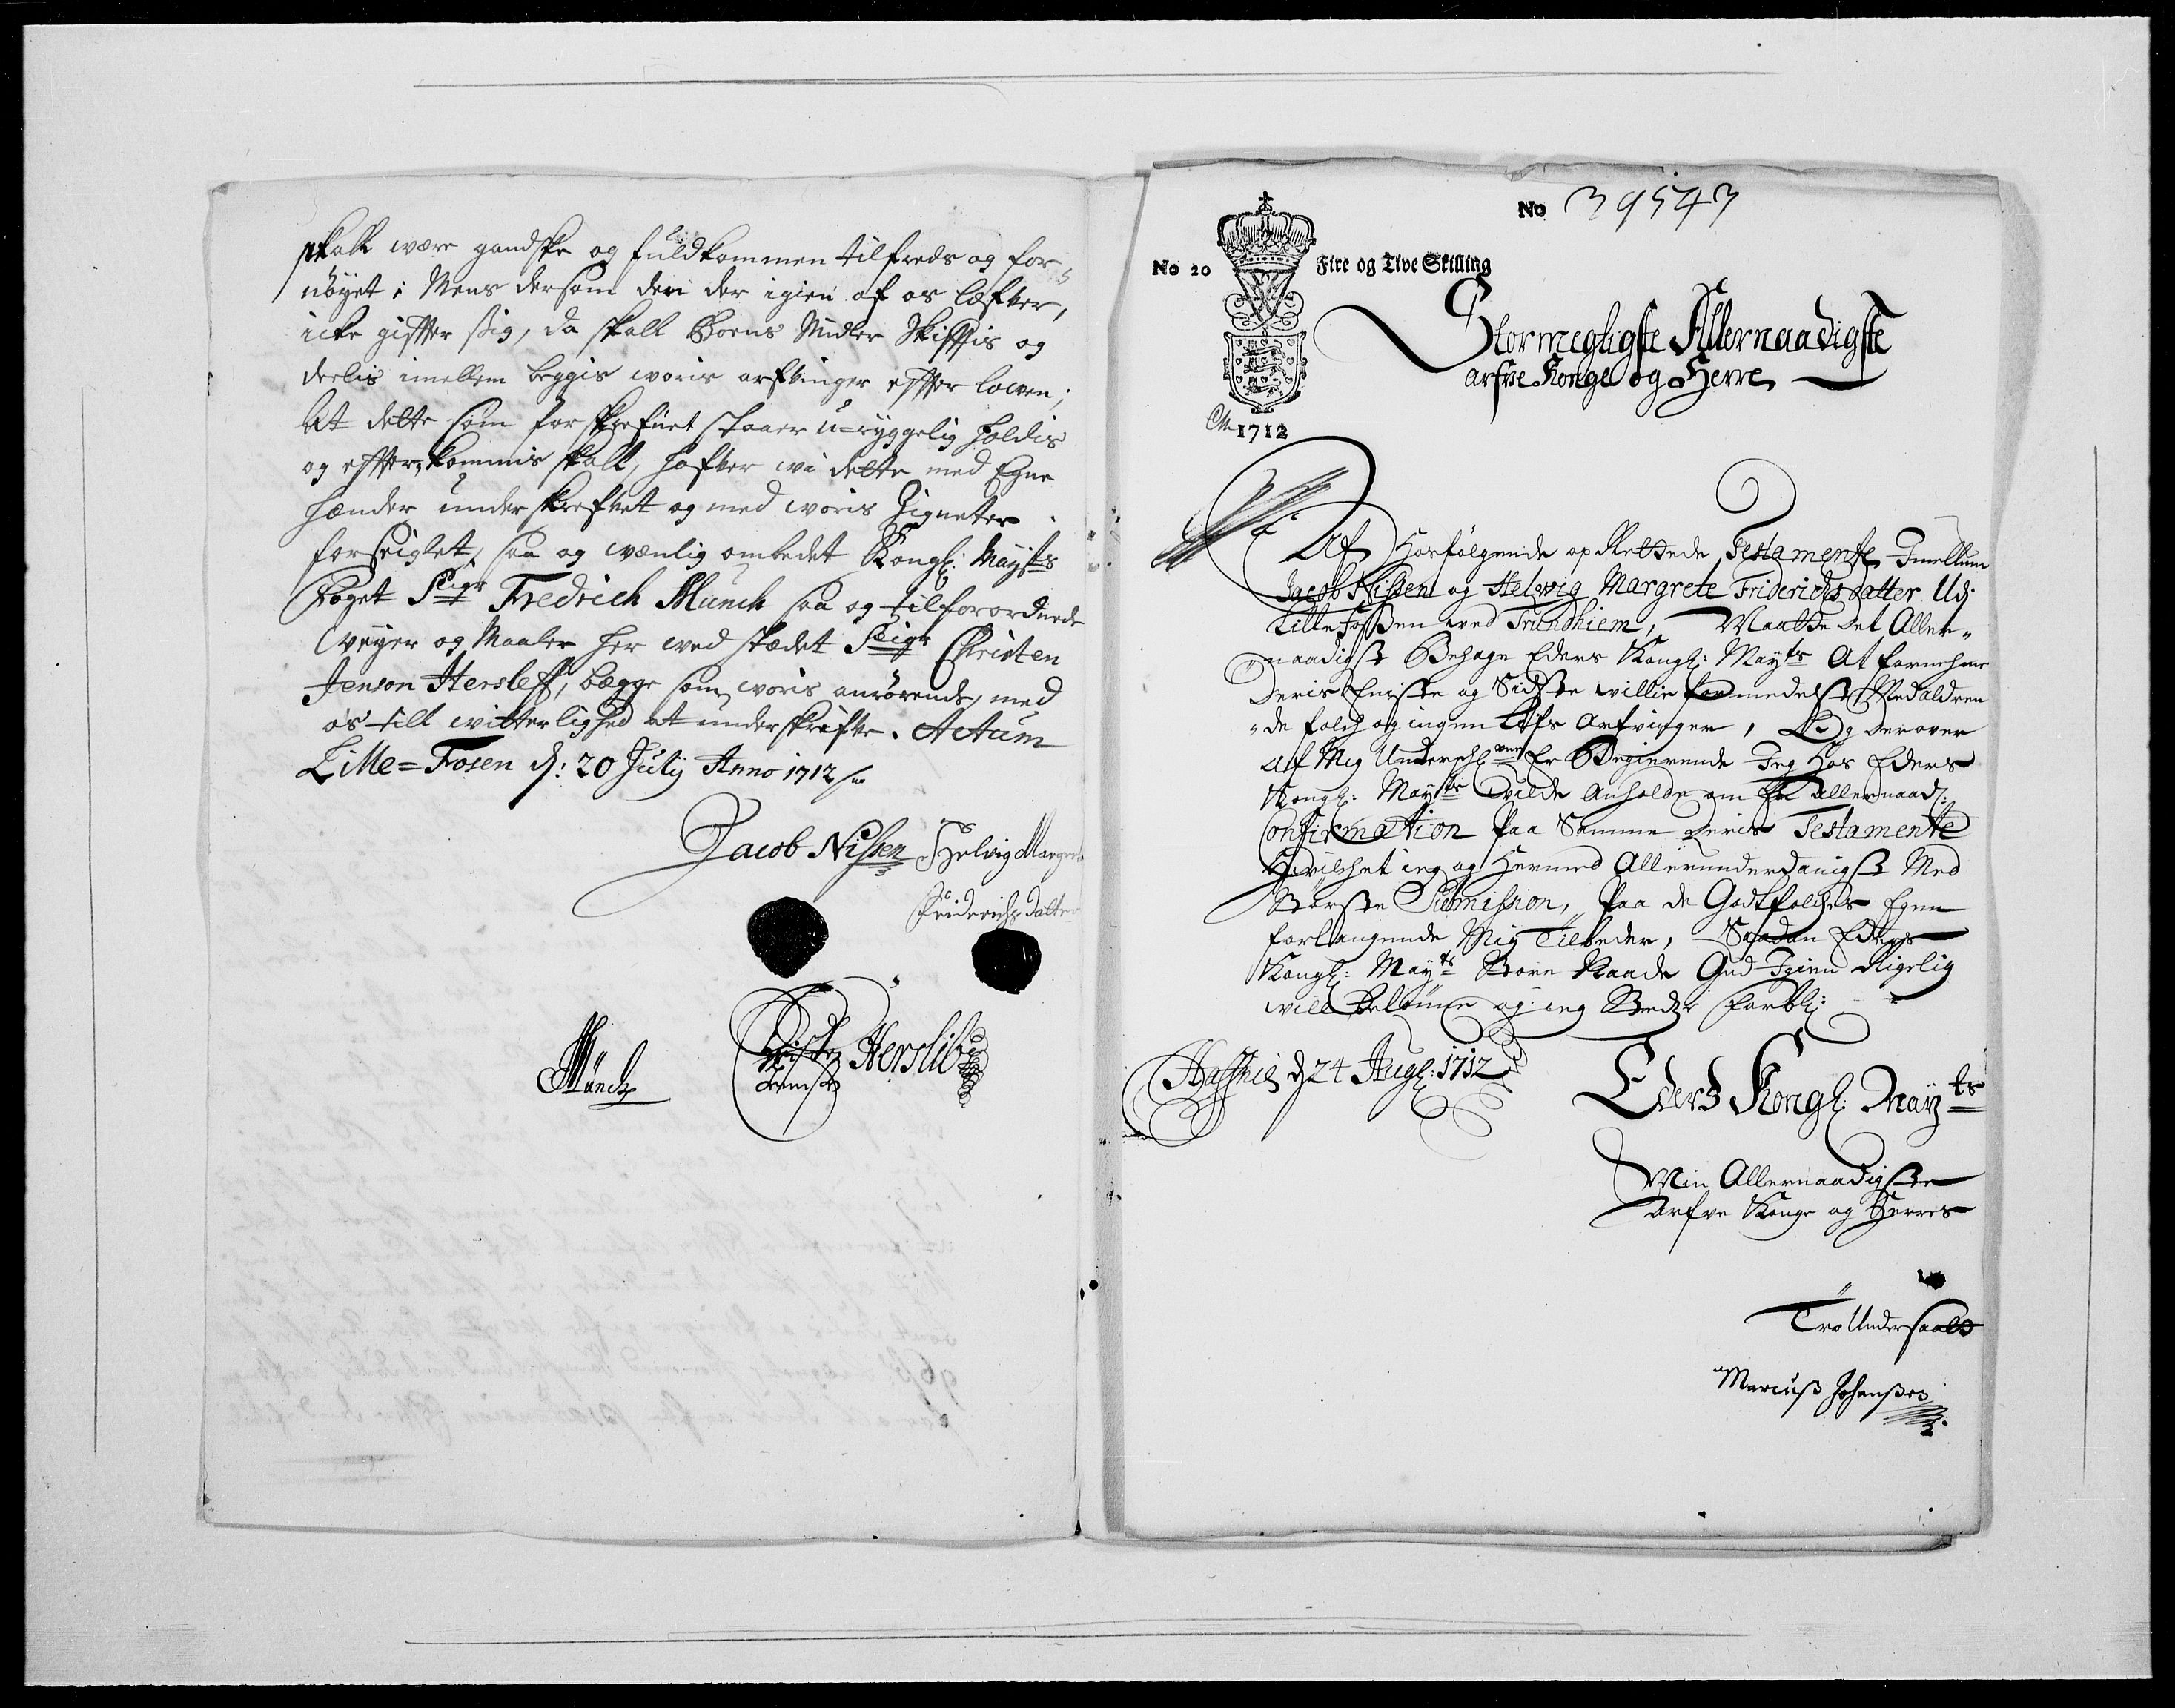 skall være gandske og fuldkommen tilfreds og for
nöyet; Mens dersom den der igien af os lefver,
icke giffter sig, da skall Boens Midler Skifftis og
deelis imellem beggis woris arfvinger effter loven;
At dette som forskrefuet staaer u-ryggelig holdis
og effterkommis skall, hafver wi dette med Egne
hænder underskrefvet og med woris Zigneter
forseiglet, saa og wenlig ombedet Kongl: Mayts
Foget Seigr Fredrich Munch saa og tilforordnede
Weyer og Maaler her wed stædet Seigr Christen
Jenson Hersleff, begge som woris anrörende, med
os till witterlighed at underskrifve. Actum
Lille=Fosen d: 20 July Anno 1712
Jacob Nissen Helvig Margrete
Friderichsdatter
Münch
Christen Jensen Herslib
No 39543
No 20 Fire og Tive Skilling
Stormegtigste Allernaadigste
arfve Konge og Herre
Ao 1712
Af Hosfølgende oprettede Testamente Imellum
Jacob Nissen og Helwig Margrete Friderichsdatter Udj
Lille Fossen wed Trundhiem, Maatte Det Aller-
naadigst Behage Eders Kongl: Mayts At fornehme
Deris Eniste og Sidste willie formedelst
-de folch og ingen Lifs Arfvinger, Og derover
Af Mig Er Begierende Jeg hos Eders
Kongl: Mayts wilde Anholde om En allernaad:
Confirmation Paa Samme Deris Testamente
Hvilchet ieg og Hermed Allerunderdanigst Med
Største Submission, Paa de Godtfolches Egen
forlangende Mig Tilbeder, Saadan Eders
Kongl: Mayts Store Naade Gud Igien Rigelig
will Belønne og ieg Stedse forbl:
Haffnie d 24 Aug: 1712
Eders Kongl: Mayts
Min Allernaadigste
Arfve Konge og Herres
Tro Undersaatt
Marcus Johansen